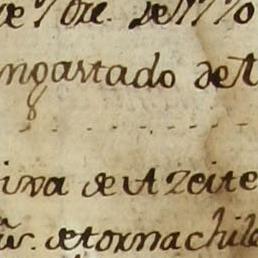 de 7bre. de 1770
ngastado de
iva de Azeite
de tornachile